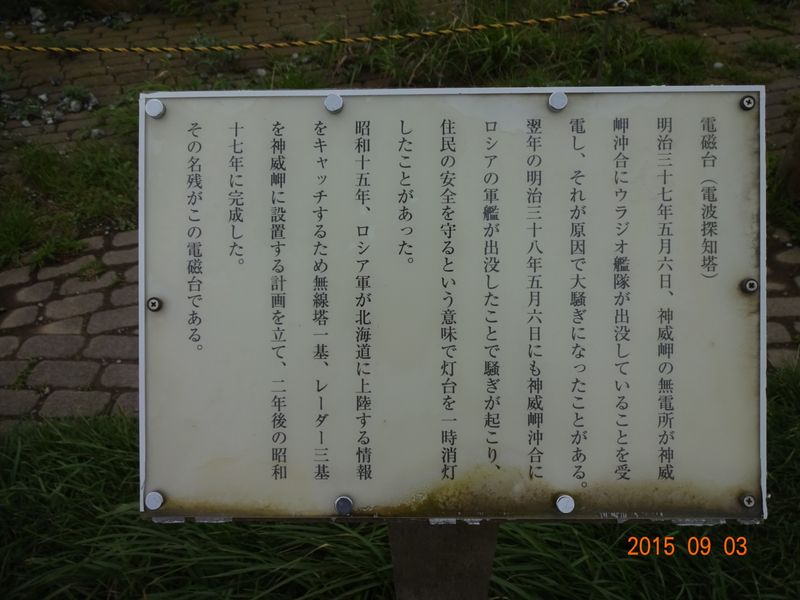 電磁台（電波探知塔）
明治三十七年五月六日、神威岬の無電所が神威
岬沖合にウラジオ艦隊が出没していることを受
電し、それが原因で大騒ぎになったことがある。
翌年の明治三十八年五月六日にも神威岬沖合に
ロシアの軍艦が出没したことで騒ぎが起こり、
住民の安全を守るという意味で灯台を一時消灯
したことがあった。
昭和十五年、ロシア軍が北海道に上陸する情報
をキャッチするため無線塔一基、レーダー三基
を神威岬に設置する計画を立て、二年後の昭和
十七年に完成した。
その名残がこの電磁台である。
2015 09 03